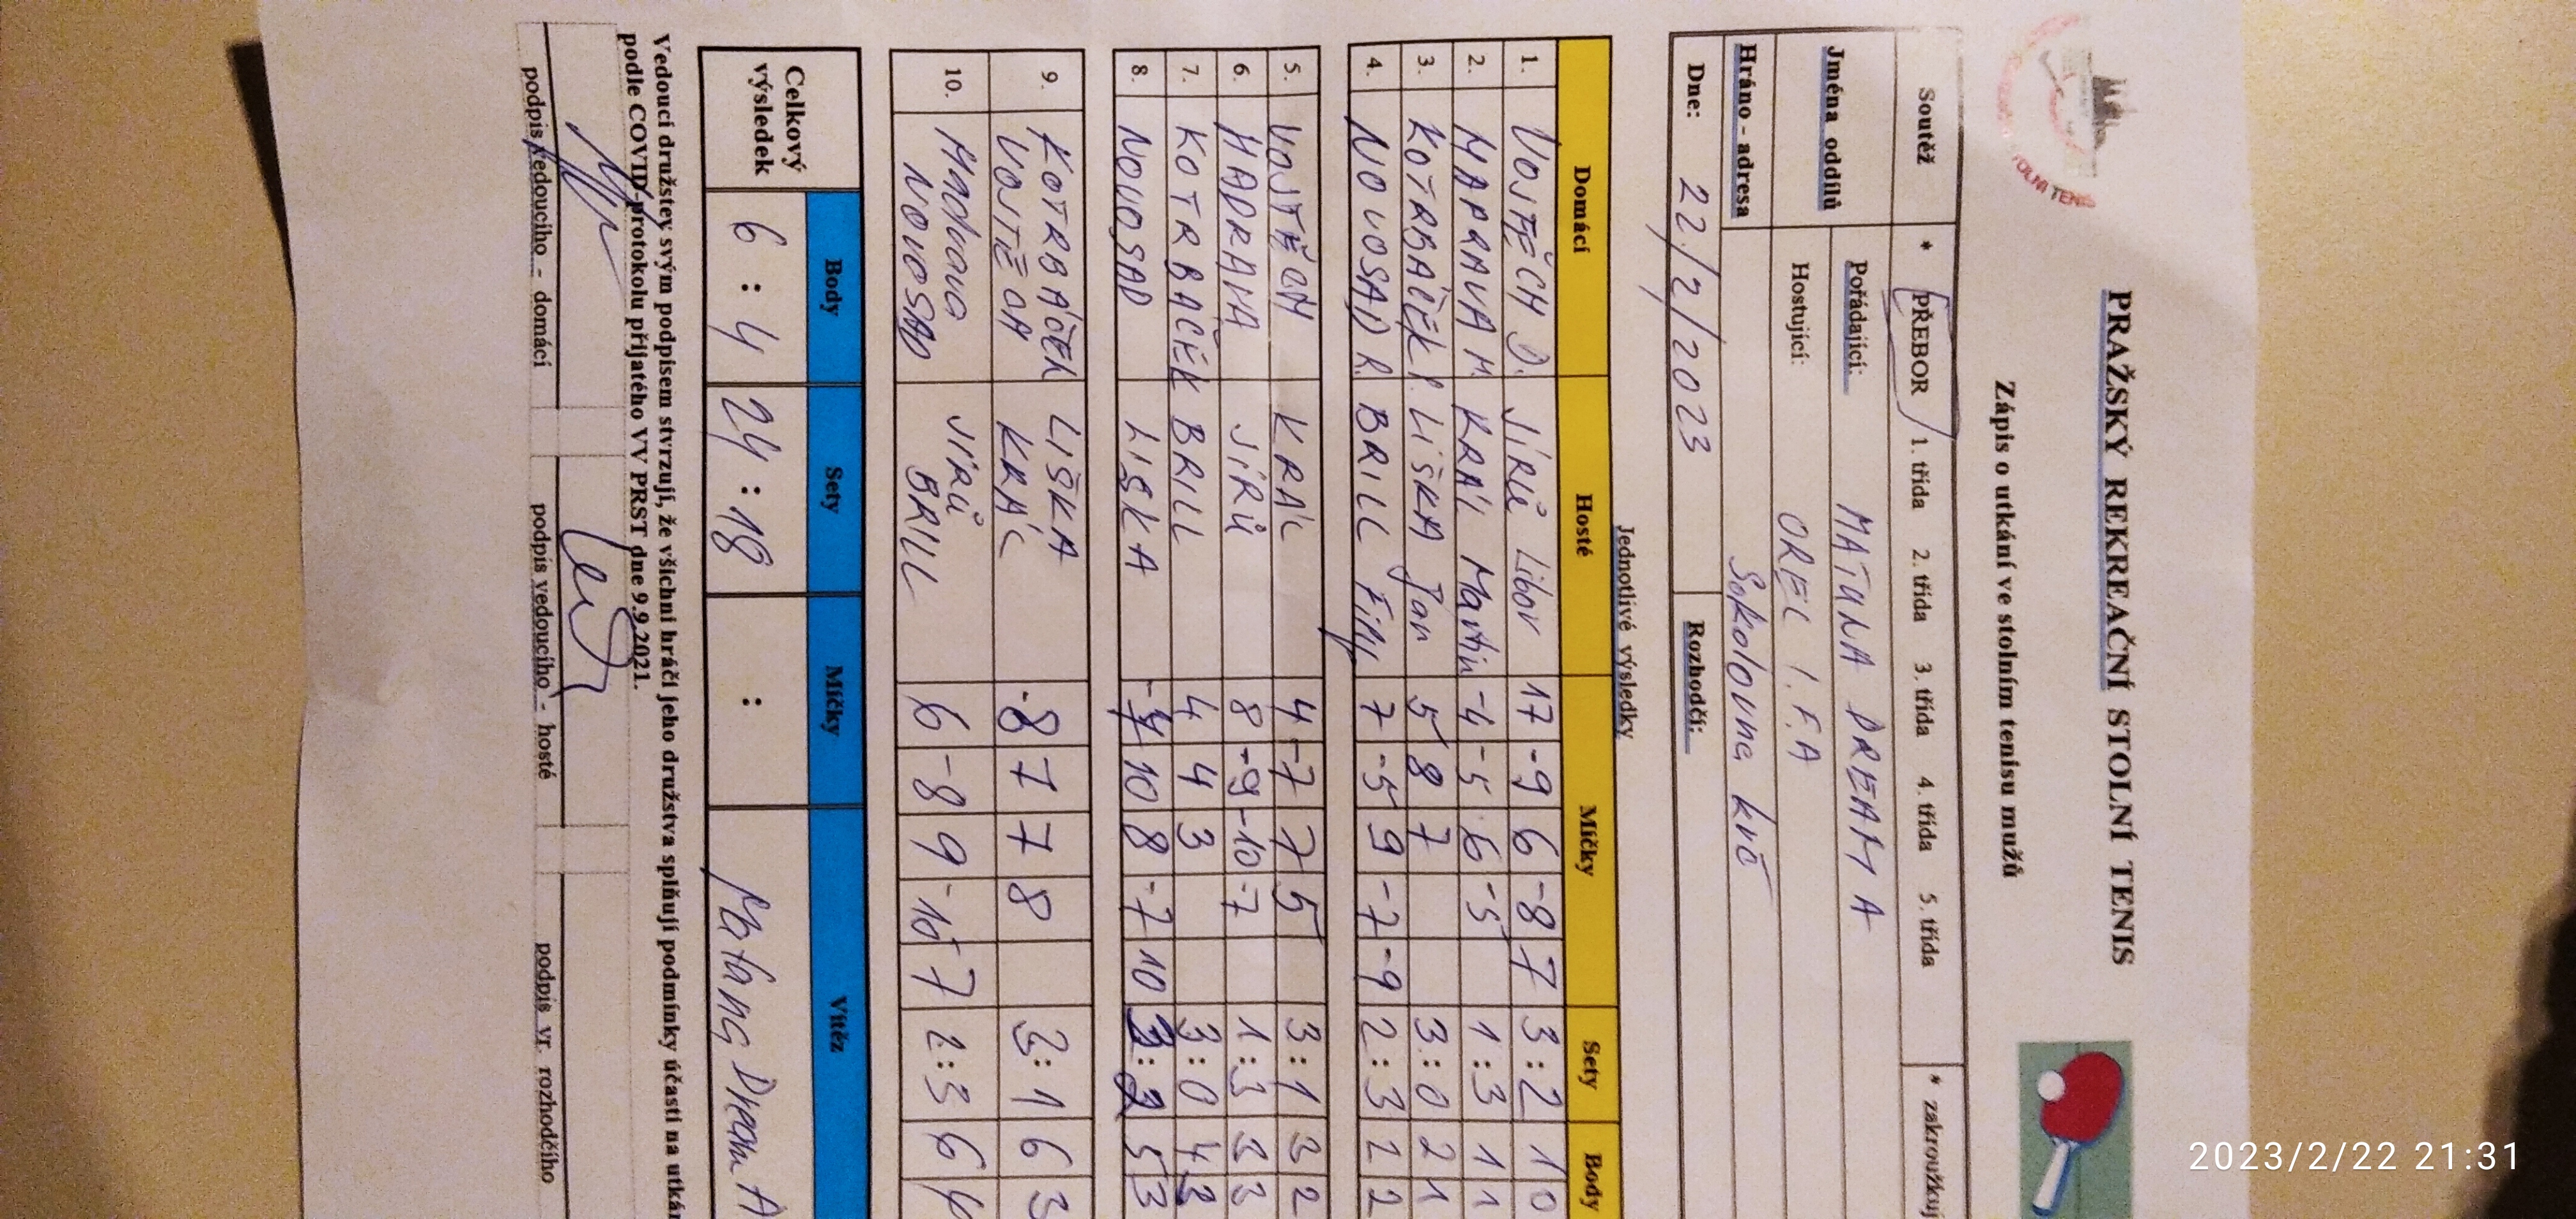 PRAŽSKÝ REKREAČNÍ STOLNÍ TENIS
Zápis o utkání ve stolním tenisu mužů
STOLNÍ TENIS
Soutěž * PŘEBOR 1. třída 2. třída 3. třída 4. třída 5. třída * zakroužkuj
Jména oddílů Pořádající: MATÁNA DREAM A
Hostující: OREL 1. F.A
Hráno - adresa Sokolovna krč
Dne: 22/2/2023 Rozhodčí:
Jednotlivé výsledky
Domácí Hosté Míčky Sety Body
1. VOJTĚCH D. JÍRŮ Libor 17 -9 6 -8 7 3:2 1 0
2. HADRAVA M. KRÁL Martin -4 -5 6 -5 1:3 1 1
3. KOTRBÁČEK P. LIŠKA Jan 5 8 7 3:0 2 1
4. NOVOSAD R. BRILL Filip 7 -5 9 -7 -9 2:3 2 2
5. VOJTĚCH KRÁL 4 -7 7 5 3:1 3 2
6. HADRAVA JÍRŮ 8 -9 -10 -7 1:3 3 3
7. KOTRBÁČEK BRILL 4 4 3 3:0 4 3
8. NOVOSAD LIŠKA -4 10 8 -7 10 3:2 5 3
9. KOTRBÁČEK LIŠKA -8 7 7 8 3:1 6 3
VOJTĚCH KRÁL
10. Hadrava JÍRŮ 6 -8 9 -10 -7 2:3 6 4
NOVOSAD BRILL
Celkový výsledek Body Sety Míčky Vítěz
6 : 4 24 : 18 : Matána Dream A
Vedoucí družstev svým podpisem stvrzují, že všichni hráči jeho družstva splňují podmínky účasti na utkán
podle COVID-protokolu přijatého VV PRST dne 9.9.2021.
podpis vedoucího - domácí podpis vedoucího - hosté podpis vr. rozhodčího
2023/2/22 21:31